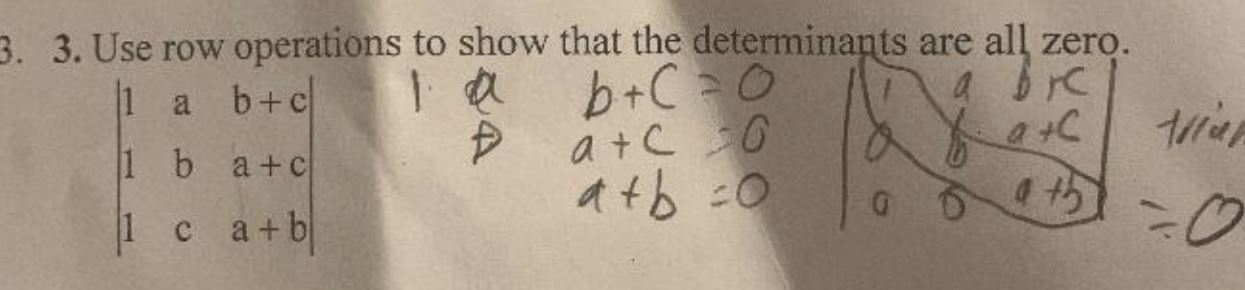 3. 3. Use row operations to show that the determinants are all zero.
1 a b+c
1 b a+c
1 c a+b
1 a b+C = 0
b a+C = 0
a+b = 0
1 a b+C
0 b a+C
0 0 a+b
= 0